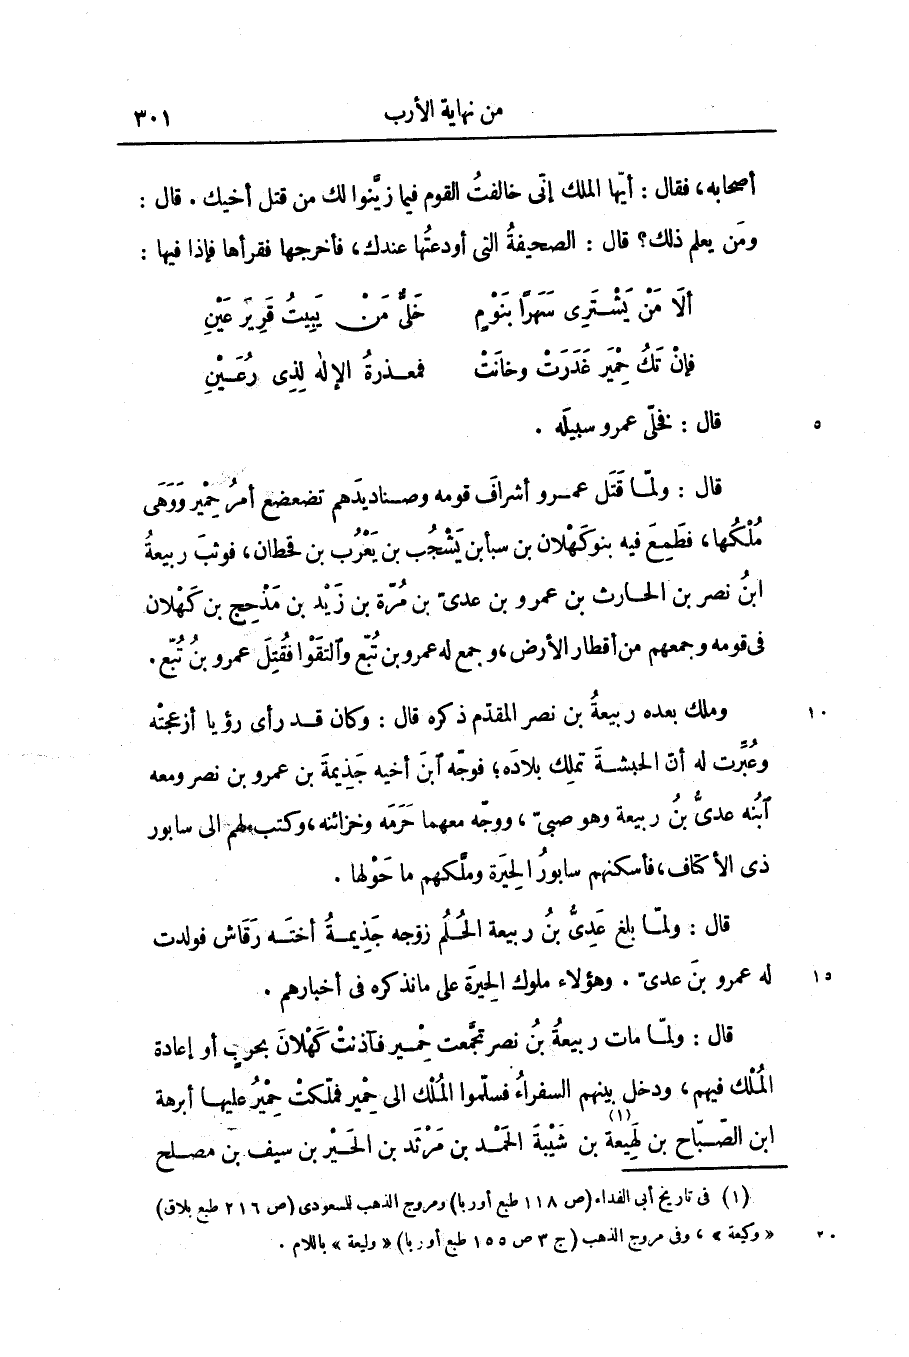 من نهاية الأرب ٣٠١
أصحابه، فقال : أيّها الملك إنّى خالفتُ القوم فيما زيَّنوا لك من قتل أخيك . قال :
ومَن يعلم ذلك؟ قال : الصحيفةُ التى أودعتُها عندك، فأخرجها فقرأها فإذا فيها :
ألَا مَنْ يَشْتَرِى سَهَرًا بنَوْمٍ خَلىٌّ مَنْ يَبِيتُ قَرِيرَ عَيْنِ
فإنْ تَكُ حِمْير غَدَرَتْ وخانَتْ فمعذرةُ الإلٰه لِذِى رُعَيْنِ
قال : فخلّى عمرو سبيلَه . ٥
قال : ولمّا قَتَل عمرو أشرافَ قومه وصناديدَهم تضعضع أمرُ حِمْير وَوَهَى
مُلْكُها، فطَمِعَ فيه بنو كَهْلان بن سبأ بن يَشْجُب بن يَعْرُب بن قحطان، فوثب ربيعةُ
ابنُ نصر بن الحارث بن عمرو بن عدىّ بن مُرّة بن زَيْد بن مَذْحِج بن كَهْلان
فى قومه وجمعهم من أقطار الأرض، وجمع له عمرو بن تُبّع وٱلتقَوْا فقُتِل عمرو بنُ تُبّع .
وملك بعده ربيعةُ بن نصر المقدّم ذكره قال : وكان قد رأى رؤيا أزعجتْه ١٠
وعُبِّرت له أنّ الحبشةَ تملِك بلادَه؛ فوجّه ٱبنَ أخيه جَذِيمةَ بن عمرو بن نصر ومعه
ٱبنُه عدىُّ بنُ ربيعة وهو صبىّ، ووجّه معهما حَرَمَه وخزائنه، وكتب لهم الى سابور
ذى الأكتاف، فأسكنهم سابورُ الحِيَرة وملَّكهم ما حَوْلها .
قال : ولمّا بلغ عَدِىُّ بنُ ربيعة الحُلُم زوّجه جَذِيمةُ أختَه رَقَاش فولدت
له عمرو بنَ عدىّ . وهؤلاء ملوك الحِيَرة على ما نذكره فى أخبارهم . ١٥
قال : ولمّا مات ربيعةُ بنُ نصر تجمَّعت حِمْير فآذنتْ كَهْلانَ بحربٍ أو إعادة
المُلْك فيهم، ودخل بينهم السفراءُ فسلّموا المُلْك الى حِمْير فملّكتْ حِمْيرُ عليها أبرهة
ابن الصّبّاح بن لَهِيعة (١) بن شَيْبةَ الحَمْد بن مَرْثَد بن الخَيْر بن سيف بن مصلح
(١) فى تاريخ أبى الفداء (ص ١١٨ طبع أوربا) ومروج الذهب للمسعودى (ص ٢١٦ طبع بلاق)
« وكيعة » ، وفى مروج الذهب (ج ٣ ص ١٥٥ طبع أوربا) « وليعة » باللام . ٢٠